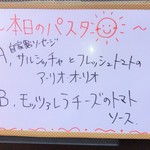 ～本日のパスタ～
自家製ソーセージ
A, サルシッチャとフレッシュトマトの
アーリオオーリオ
B, モッツァレラチーズのトマト
ソース